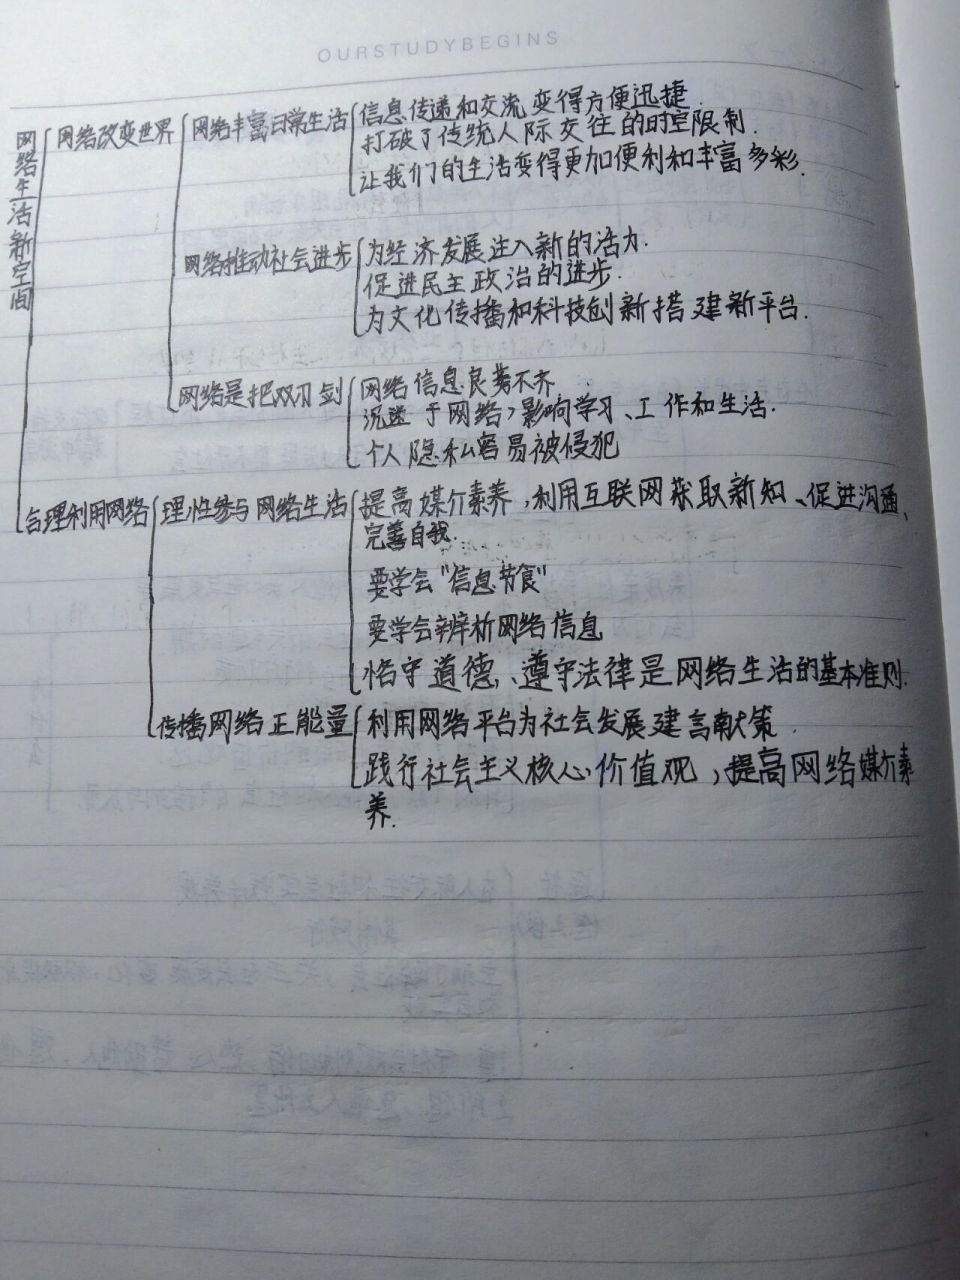 OURSTUDYBEGINS
网络生活新空间
网络改变世界
网络丰富日常生活
信息传递和交流变得方便迅捷.
打破了传统人际交往的时空限制.
让我们的生活变得更加便利和丰富多彩.
网络推动社会进步
为经济发展注入新的活力.
促进民主政治的进步.
为文化传播和科技创新搭建新平台.
网络是把双刃剑
网络信息良莠不齐
沉迷于网络,影响学习、工作和生活.
个人隐私容易被侵犯
合理利用网络
理性参与网络生活
提高媒介素养,利用互联网获取新知、促进沟通、
完善自我.
要学会"信息节食"
要学会辨析网络信息
恪守道德、遵守法律是网络生活的基本准则.
传播网络正能量
利用网络平台为社会发展建言献策.
践行社会主义核心价值观,提高网络媒介素
养.